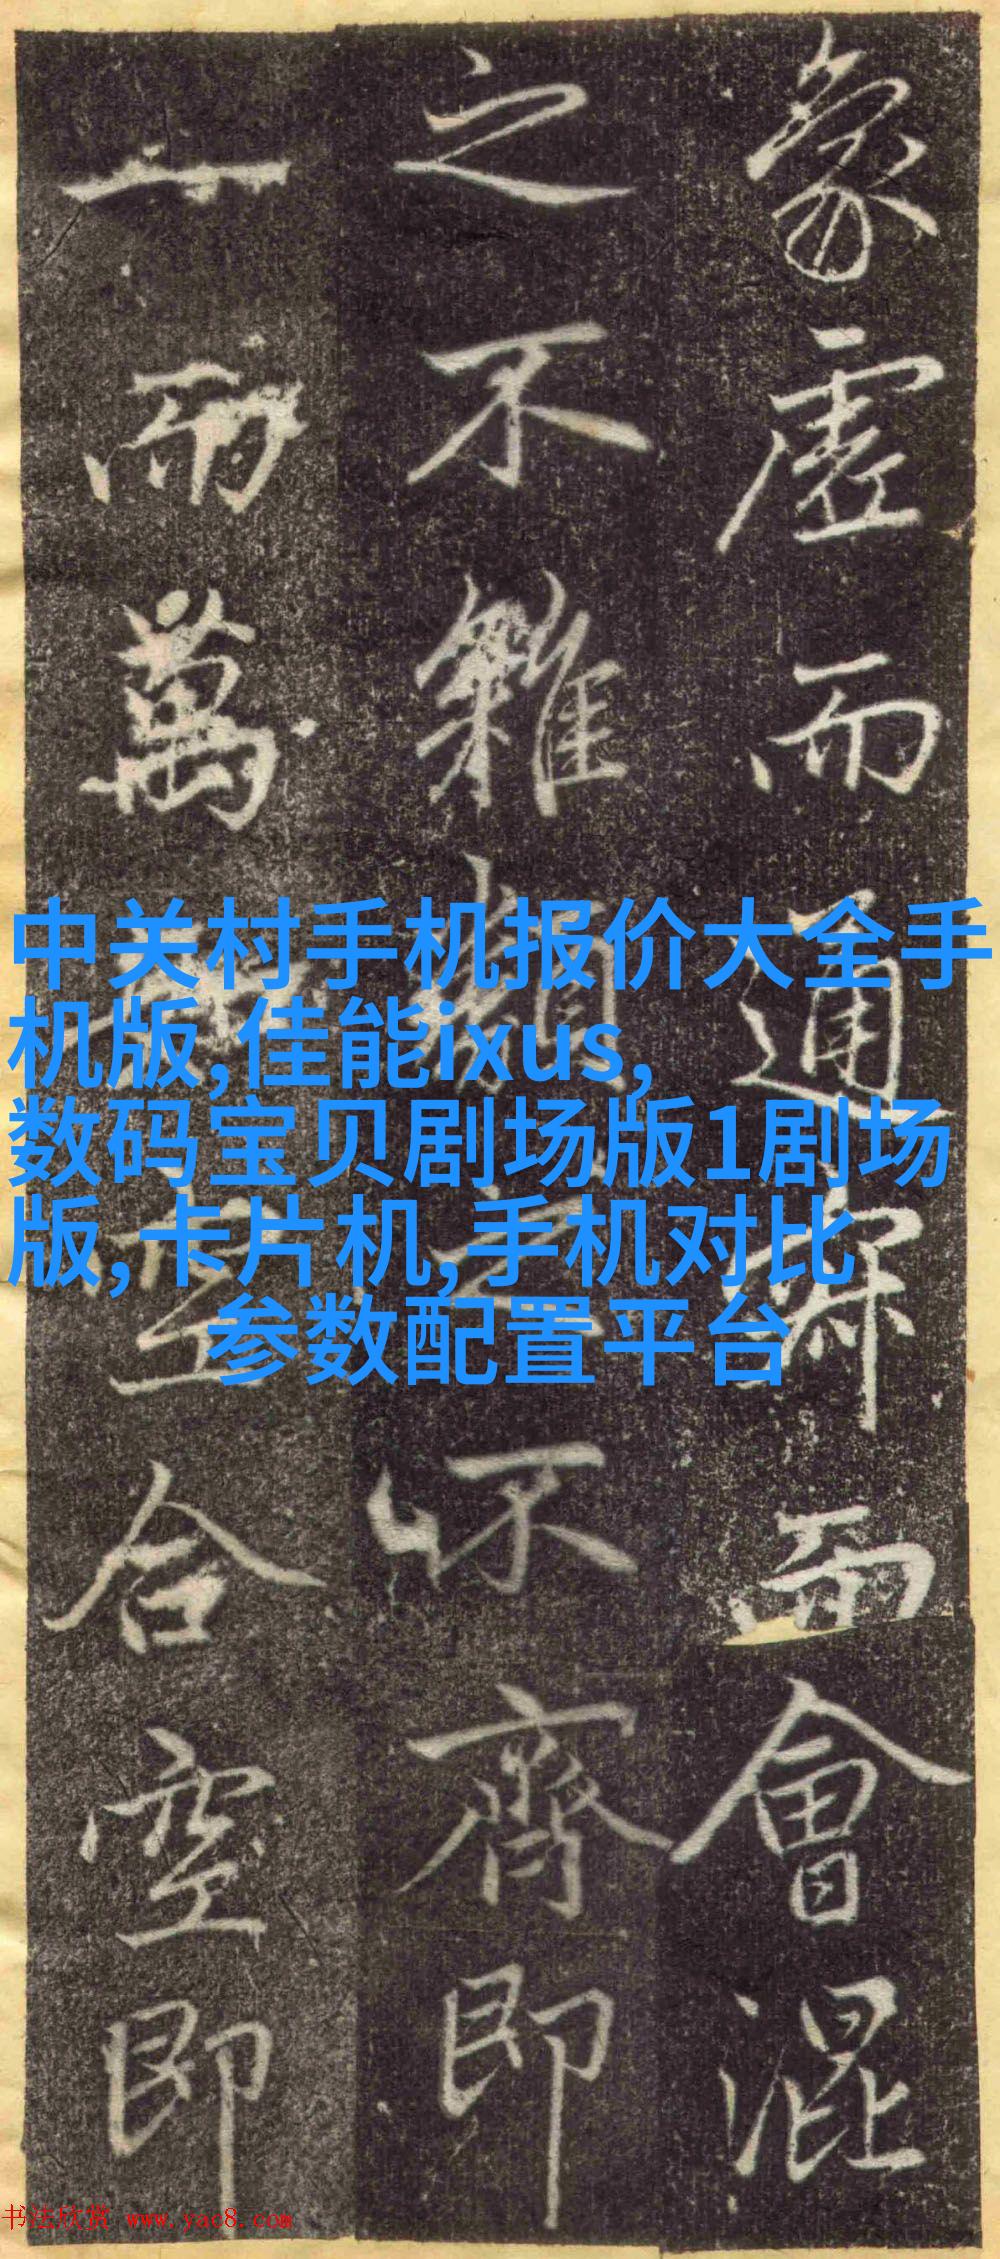 象虛而通而會混
之不雜類之不齊即
一而萬空合空即
中关村手机报价大全手
机版,佳能ixus,
数码宝贝剧场版1剧场
版,卡片机,手机对比
参数配置平台
书法欣赏 www.yac8.com